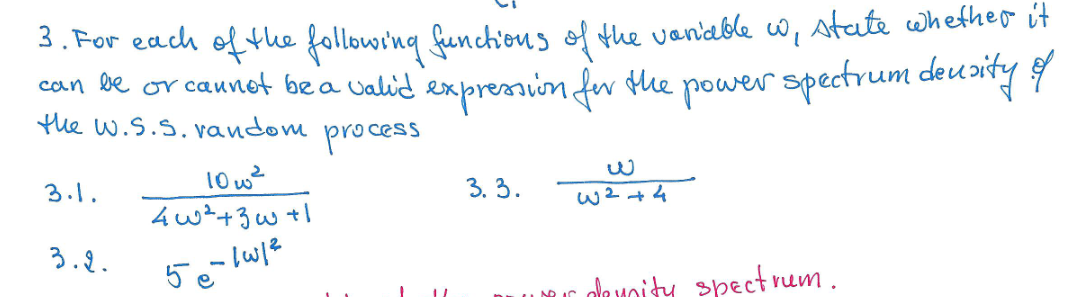 3. For each of the following functions of the variable ω, state whether it
can be or cannot be a valid expression for the power spectrum density of
the W.S.S. random process
3.1. 10ω² / (4ω²+3ω+1)
3.3. ω / (ω²+4)
3.2. 5e^(-|ω|²)
density spectrum.